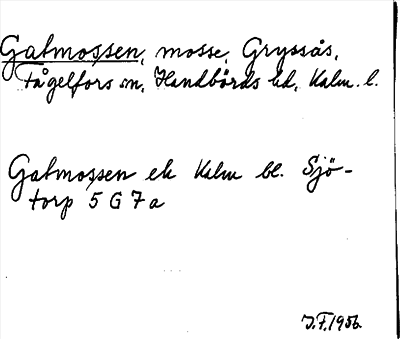 Galmossen, mosse, Gryssås,
Fågelfors sn, Handbörds hd, Kalm. l.
Galmossen ek Kalm bl. Sjö-
torp 5 G 7 a
J.F. 1956